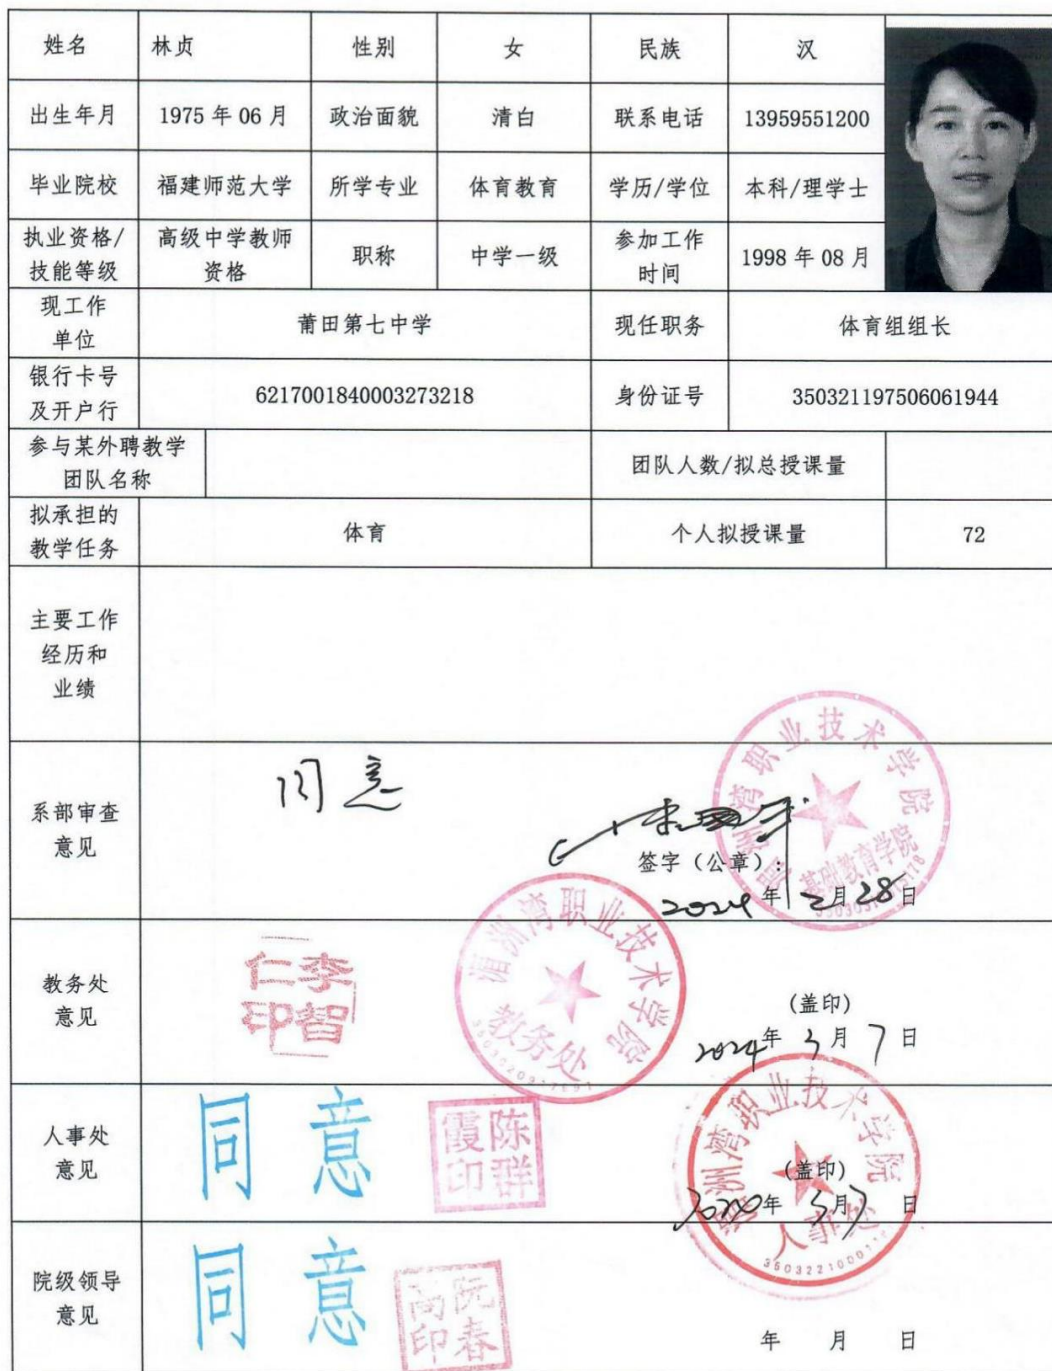 姓名 林贞 性别 女 民族 汉
出生年月 1975年06月 政治面貌 清白 联系电话 13959551200
毕业院校 福建师范大学 所学专业 体育教育 学历/学位 本科/理学士
执业资格/
技能等级
高级中学教师
资格
职称 中学一级
参加工作
时间
1998年08月
现工作
单位
莆田第七中学 现任职务 体育组组长
银行卡号
及开户行
6217001840003273218 身份证号 350321197506061944
参与某外聘教学
团队名称
团队人数/拟总授课量
拟承担的
教学任务
体育 个人拟授课量 72
主要工作
经历和
业绩
系部审查
意见
同意
湄洲湾职业技术学院
基础教育学院
签字（公章）：
2024年2月28日
教务处
意见
李智
仁印
湄洲湾职业技术学院
教务处
(盖印)
2024年3月7日
人事处
意见
同意
陈群
霞印
湄洲湾职业技术学院
人事处
(盖印)
年3月7日
院级领导
意见
同意
阮春
高印
年 月 日